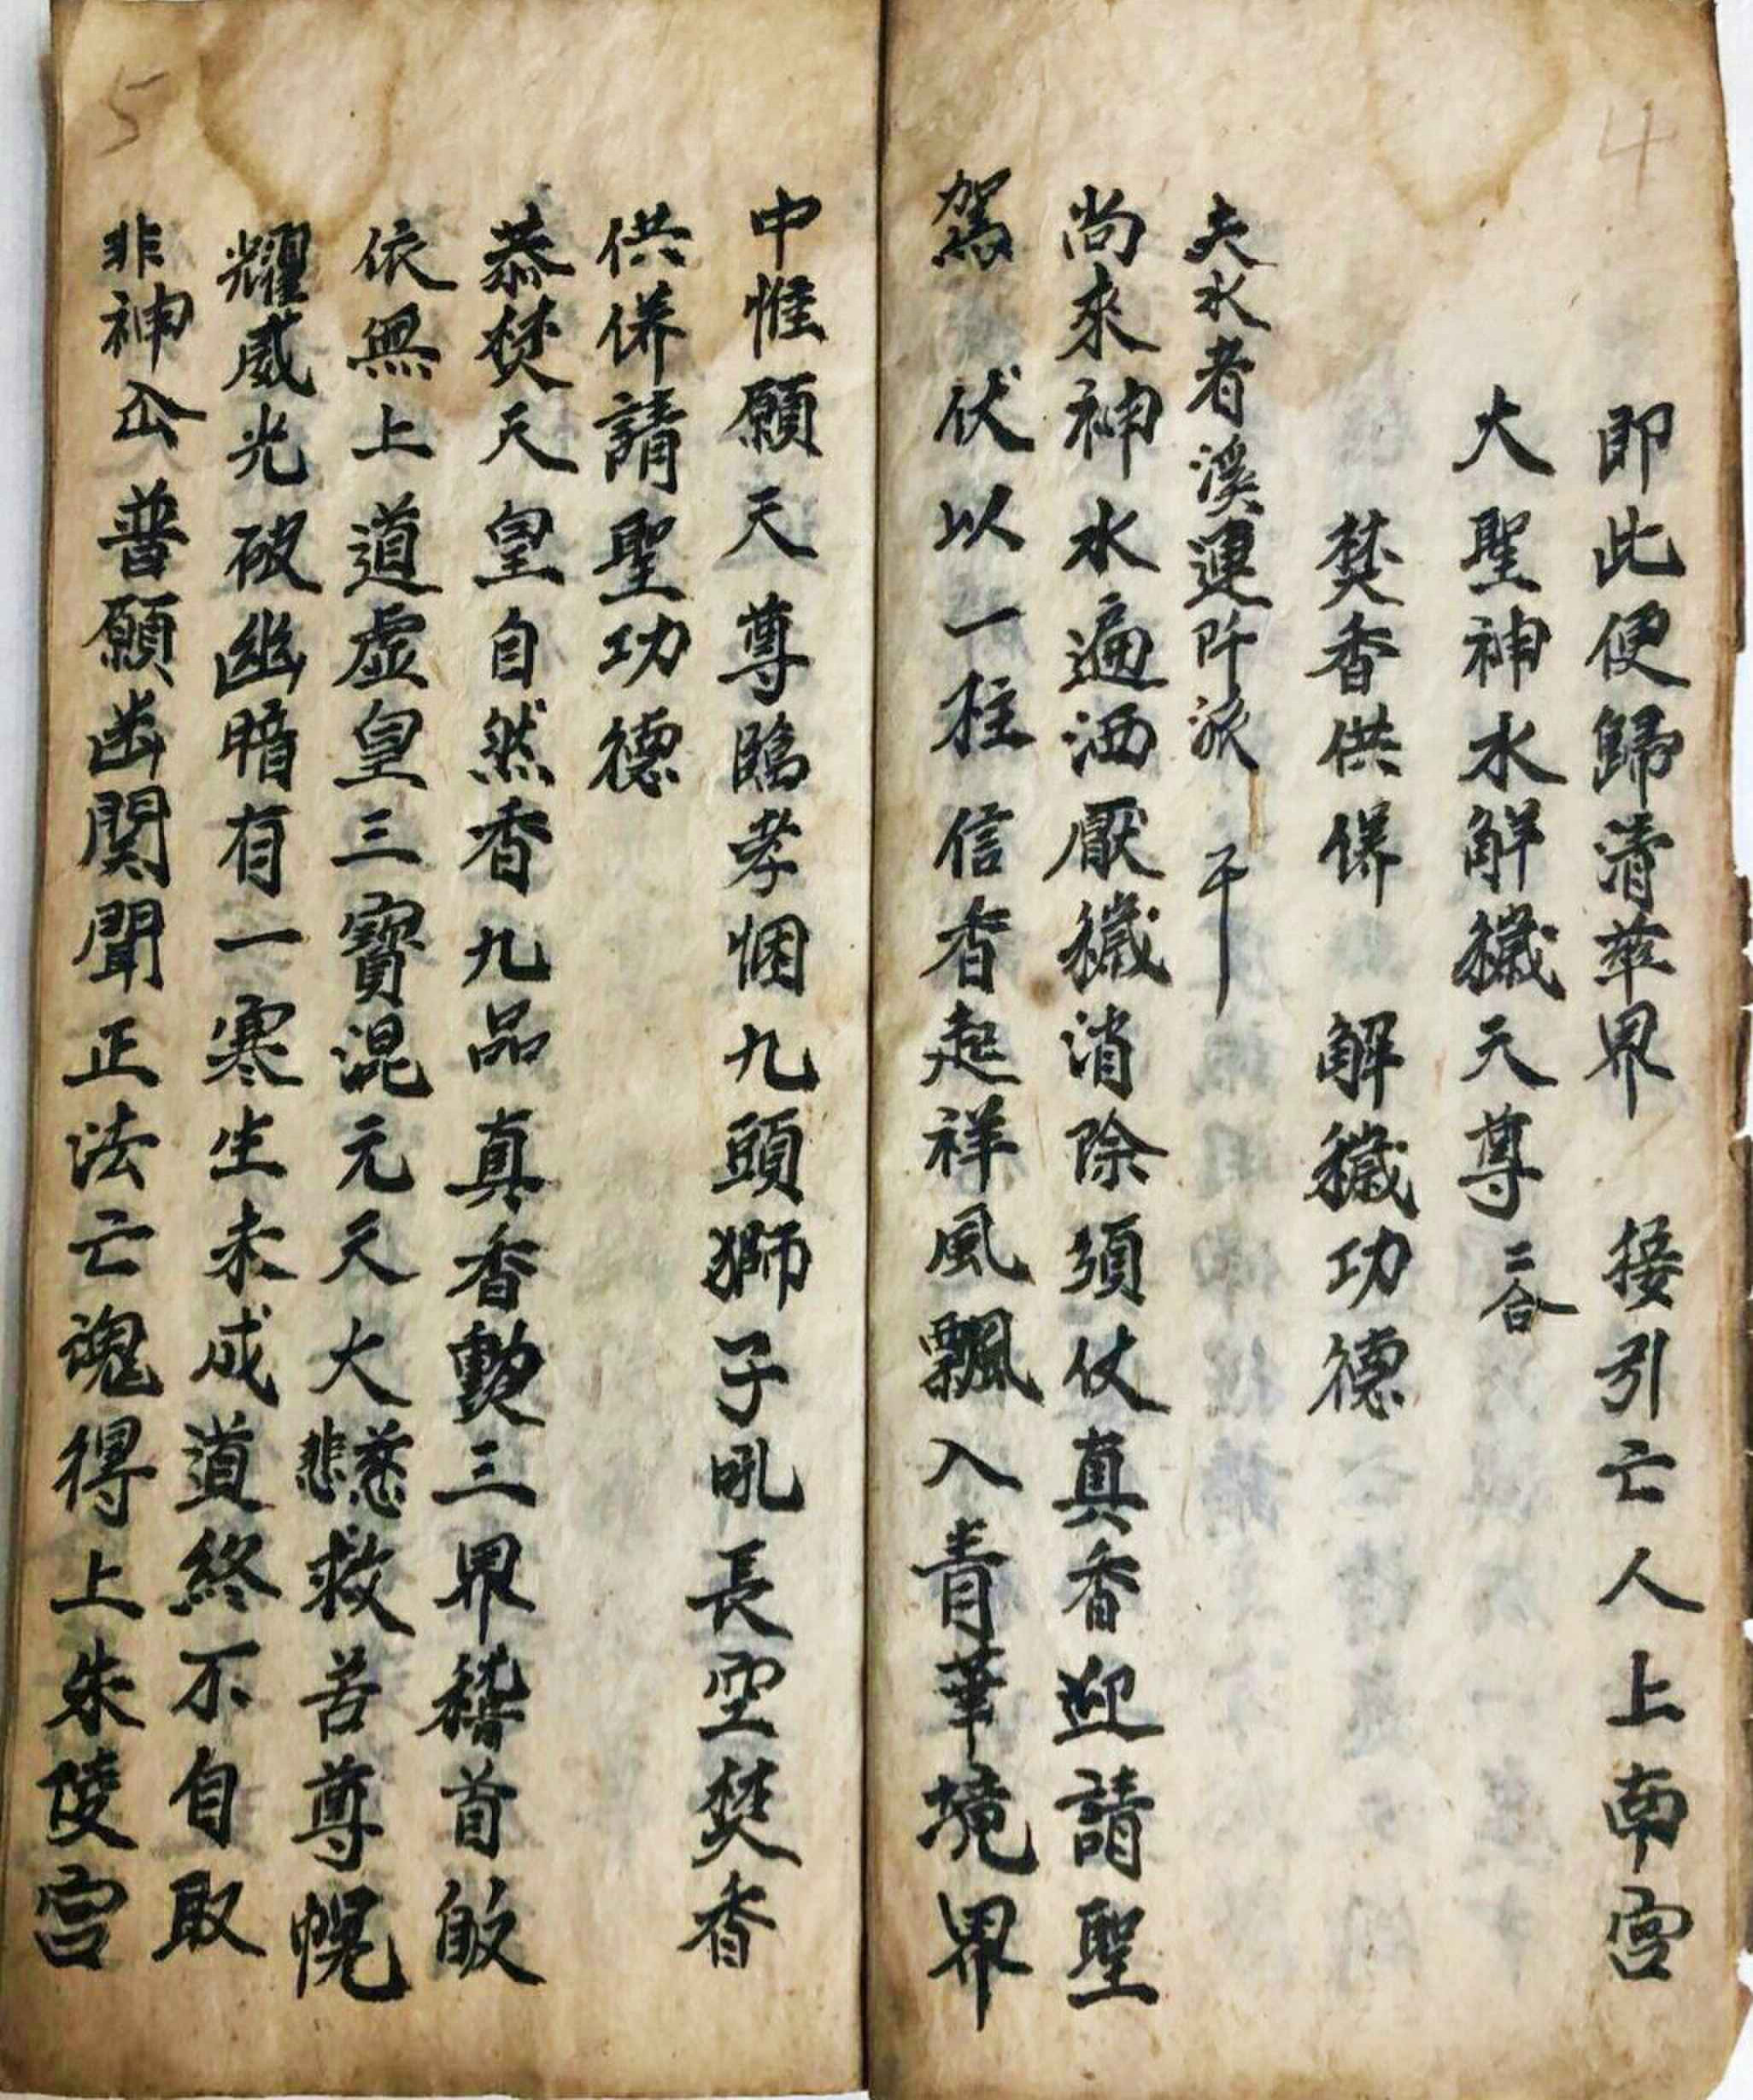 4
即此便歸清華界 接引亡人上南宮
大聖神水解穢天尊 二合
焚香供養 解穢功德
夫水者溪運阡派 干
尚來神水遍洒厭穢消除須仗真香迎請聖
駕 伏以一柱信香起祥風飄入青華境界
5
中惟願天尊臨孝悃九頭獅子吼長空焚香
供養請聖功德
恭焚天皇自然香九品真香動三界稽首皈
依無上道虛皇三寶混元天大慈悲救苦尊幌
耀威光破幽暗有一寒生未成道終不自取
非神公普願幽関聞正法亡魂得上朱陵宮